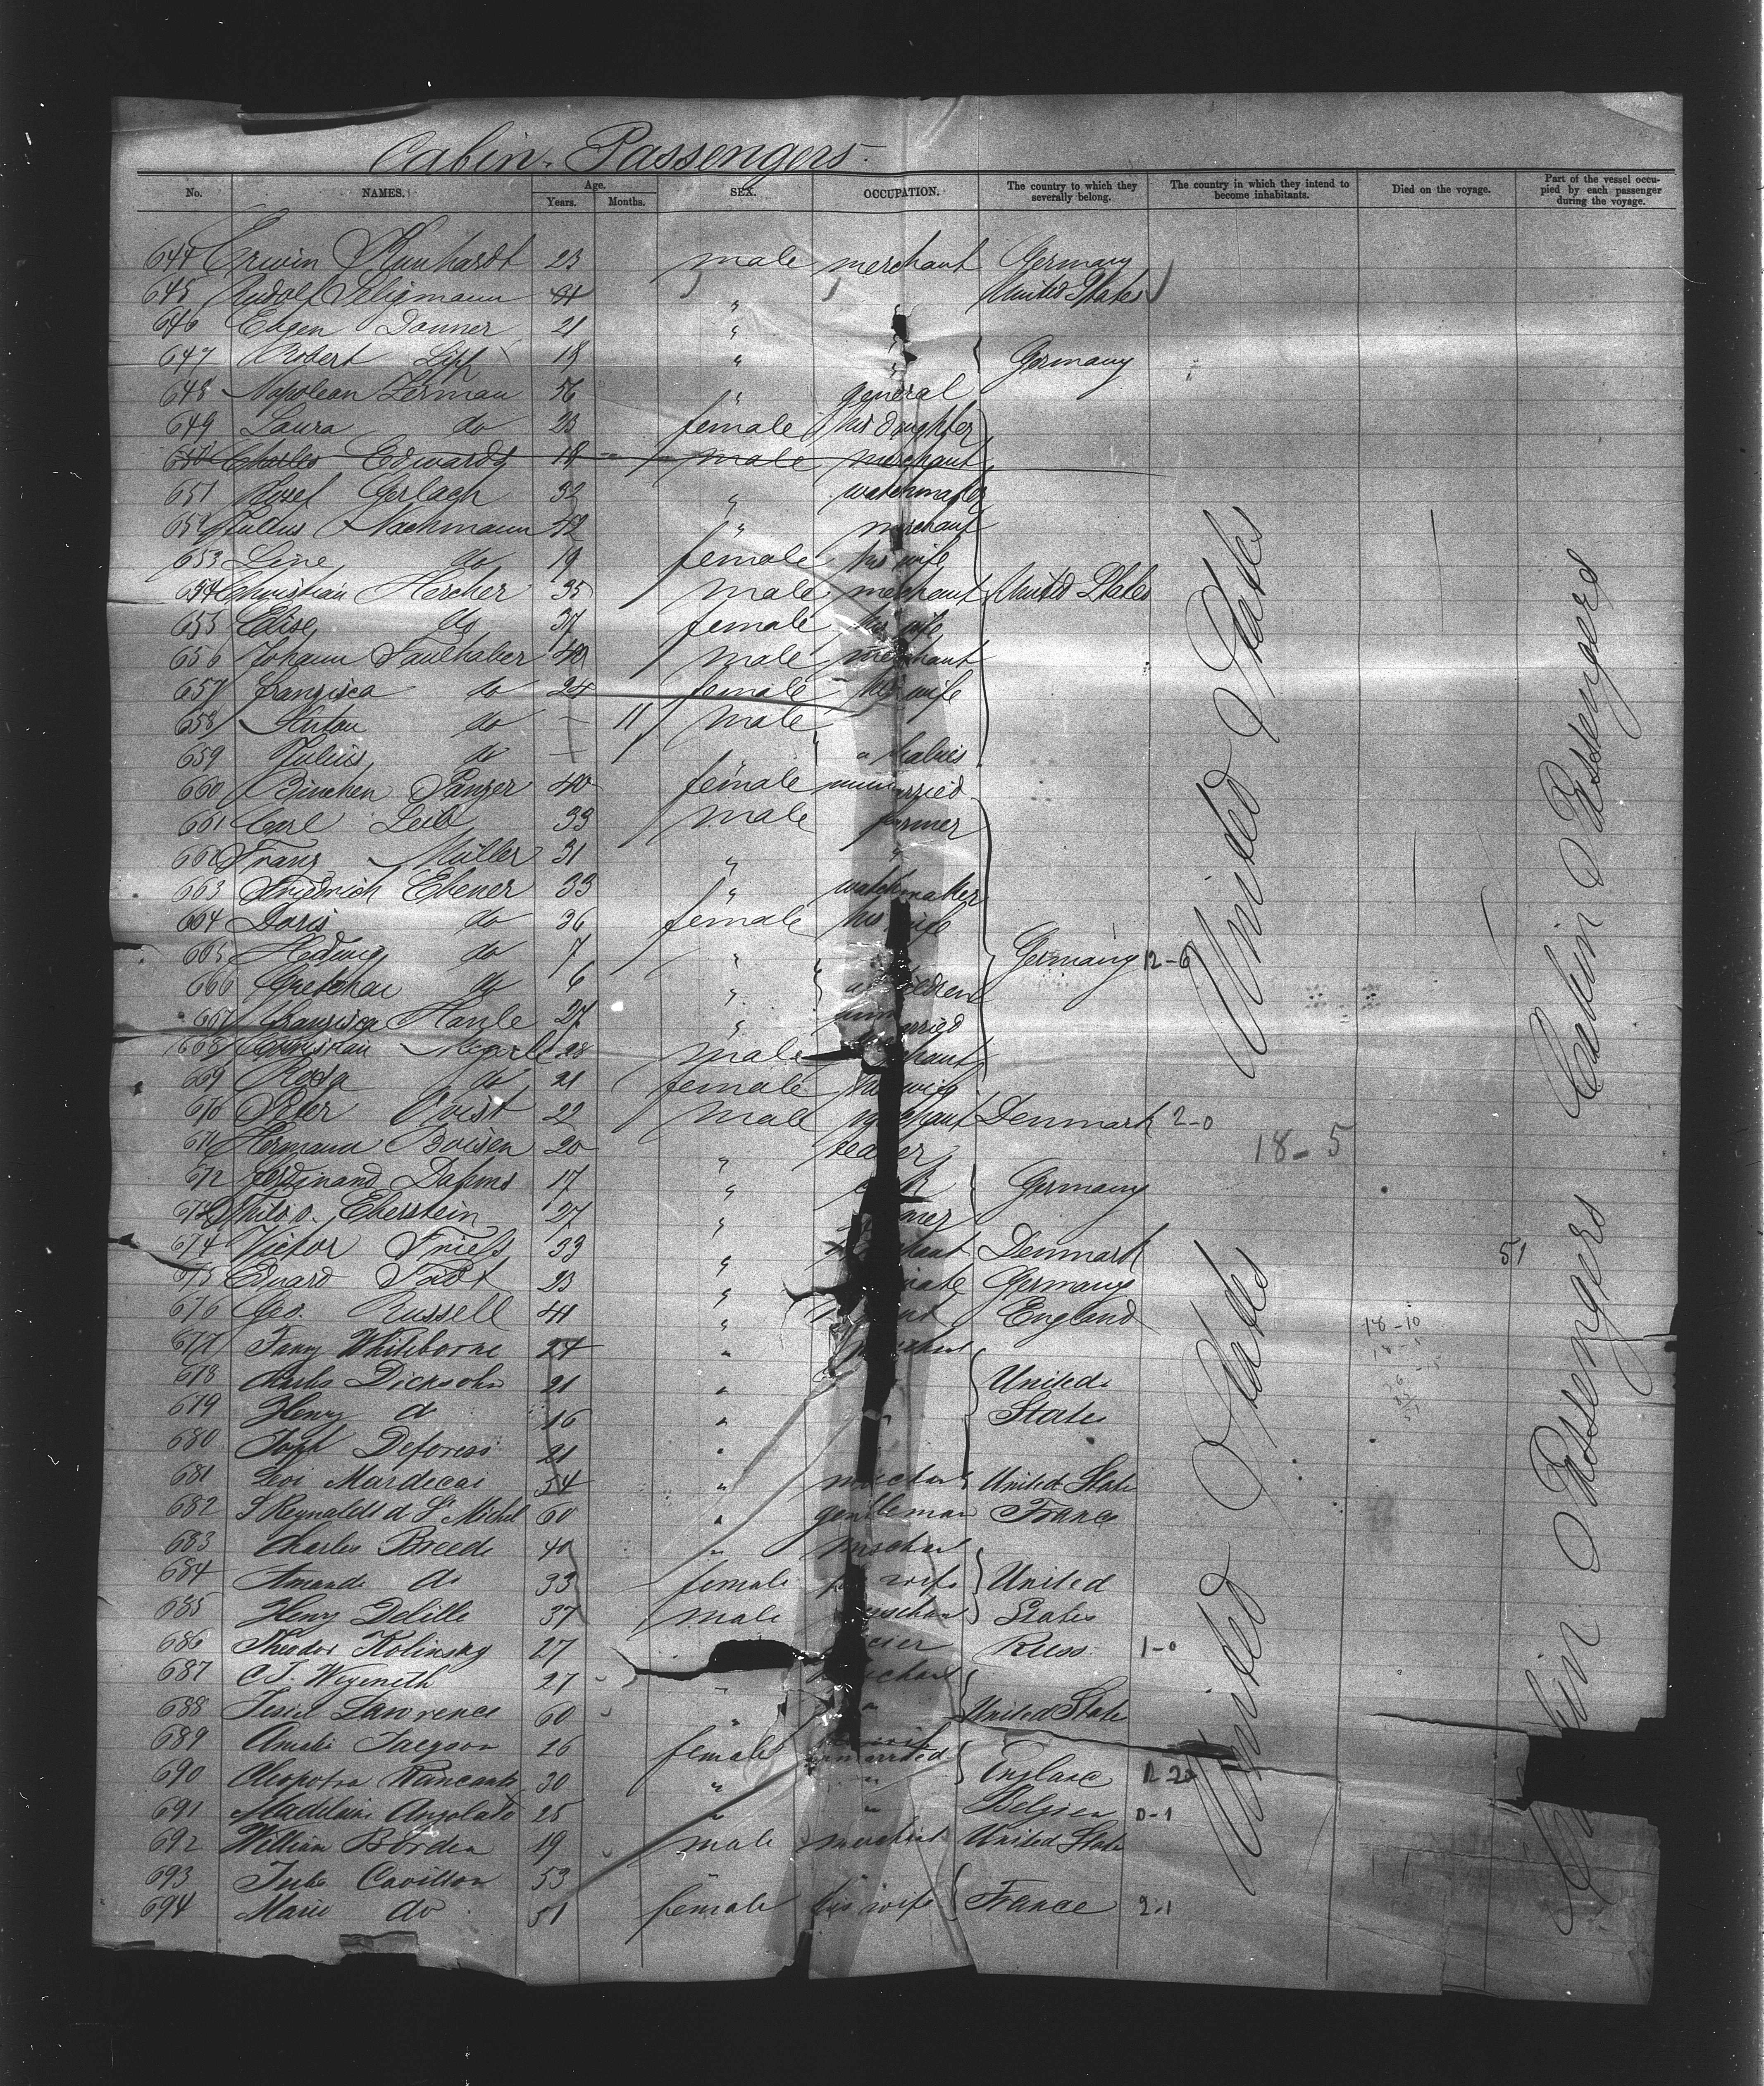 Cabin Passengers.
No. NAMES. Age. Years. Months. SEX. OCCUPATION. The country to which they severally belong. The country in which they intend to become inhabitants. Died on the voyage. Part of the vessel occupied by each passenger during the voyage.
644 Erwin Kunhardt 23 male merchant Germany
645 Rudolf Seligmann 41 " United States
646 Eugen Donner 21 "
647 Robert Lipp 18 " Germany
648 Napolean 56 " general
649 Laura do 23 female his daughter
650 Charles Edwards 18 male merchant
651 Josef Gerlach 32 " watchmaker
652 Julius Nachmann 42 " merchant
653 Line do 19 female his wife
654 Christian Hercher 35 male merchant United States
655 Elise do 37 female his wife
656 Johann Faulhaber 40 male merchant
657 Franzisca do 24 female his wife
658 Anton do - 11 male
659 Julius do - " babies
660 Binchen Panzer 40 female unmarried
661 Carl Leib 33 male farmer
662 Franz Müller 31 " "
663 Friedrich Ebener 33 " watchmaker
664 Doris do 36 female his wife
665 Hedwig do 7 " Germany 12-6
666 Gretchen do 6 " children
667 Franzisca Hanle 27 " unmarried
668 Christian 28 male merchant
669 Rosa do 21 female his wife
670 Peer Qvist 22 male merchant Denmark 2-0
671 Hermann Boisen 20 "
18-5
672 Ferdinand Dahms 17 " Germany
673 Thilo v. Eberstein 27 "
674 Victor Friess 33 " Denmark
51
675 Eduard Todt 23 " Germany
676 Geo. Russell 41 " England
18-10
677 Whiteborne 24 " merchant
678 Charles Dicksohn 21 " United
679 Henry do 16 " " States
680 Joseph Deforess 21 "
681 Levi Mardecai 54 " merchant United State
682 S Reynalds d St Michel 60 " gentleman France
683 Charles Breede 40 " merchant
684 Amanda do 33 female his wife United
685 Henry Delille 37 male merchant States
686 Theodor Kolinsky 27 Russ. 1-0
687 C.J. Wegeneth 27 " merchant
688 Lawrence 60 " " United State
689 Amalie 26 female unmarried
690 Cleopatra 30 " " England
691 Madelaine Angolato 25 " " Belgien 0-1
692 William Borden 19 male merchant United State
693 Jules Cavillon 53
694 Marie do 51 female his wife France 2-1
United States
United States
Cabin Passengers
Cabin Passengers